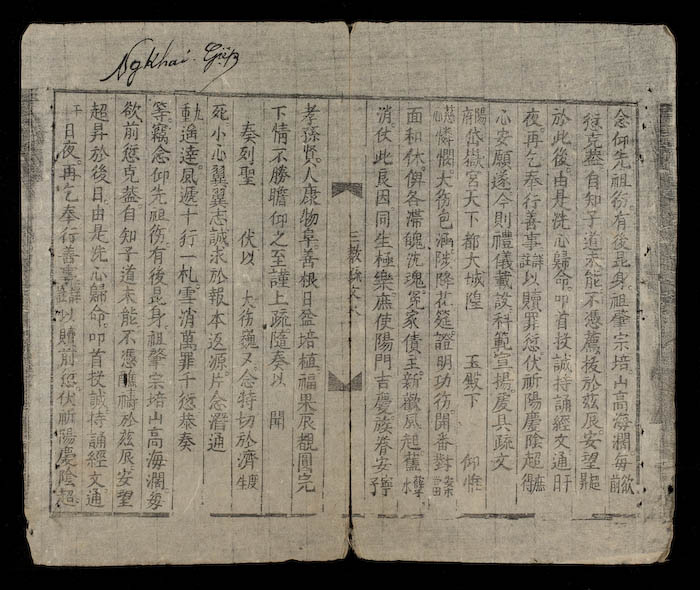 Ng Khai. Giáp
念仰先祖彷有後昆身。祖肇宗培。山高海濶每欲前
愆克蓋自知子道未能不憑薦援於茲辰安望超
於此後。由是洗心歸命。叩首投誠持誦經文通肝
夜。再乞奉行善事以贖罪愆伏祈陽慶陰超
心安願遂今則禮儀載設科範宣揚處具疏文
陽府岱嶽宮天下都大城隍 玉殿下 仰惟
慈憐憫大彷包涵陟降花筵證明功彷。開番對
面和休。俾各滯魄沈魂冤家債主新歡夙起舊水
消仗此良因同生極樂庥使陽門吉慶族眷安寧
三教疏文
孝孫賢。人康物阜善根日盈培植福果辰覩圓完
下情不勝瞻仰之至謹上疏隨奏以 聞
奏列聖 伏以 大彷巍又念特切於濟度
死小心翼翼志誠求於報本返源片念潛通
動遙達風遞十行一札雪消萬罪千愆恭奏
等竊念仰先祖彷有後昆身。祖肇宗培山高海濶每
欲前愆克蓋自知子道未能不憑醮禱於茲辰安望
超昇於後日由是洗心歸命。叩首投誠持誦經文通
日夜再乞奉行善事以贖前愆伏祈陽慶陰超